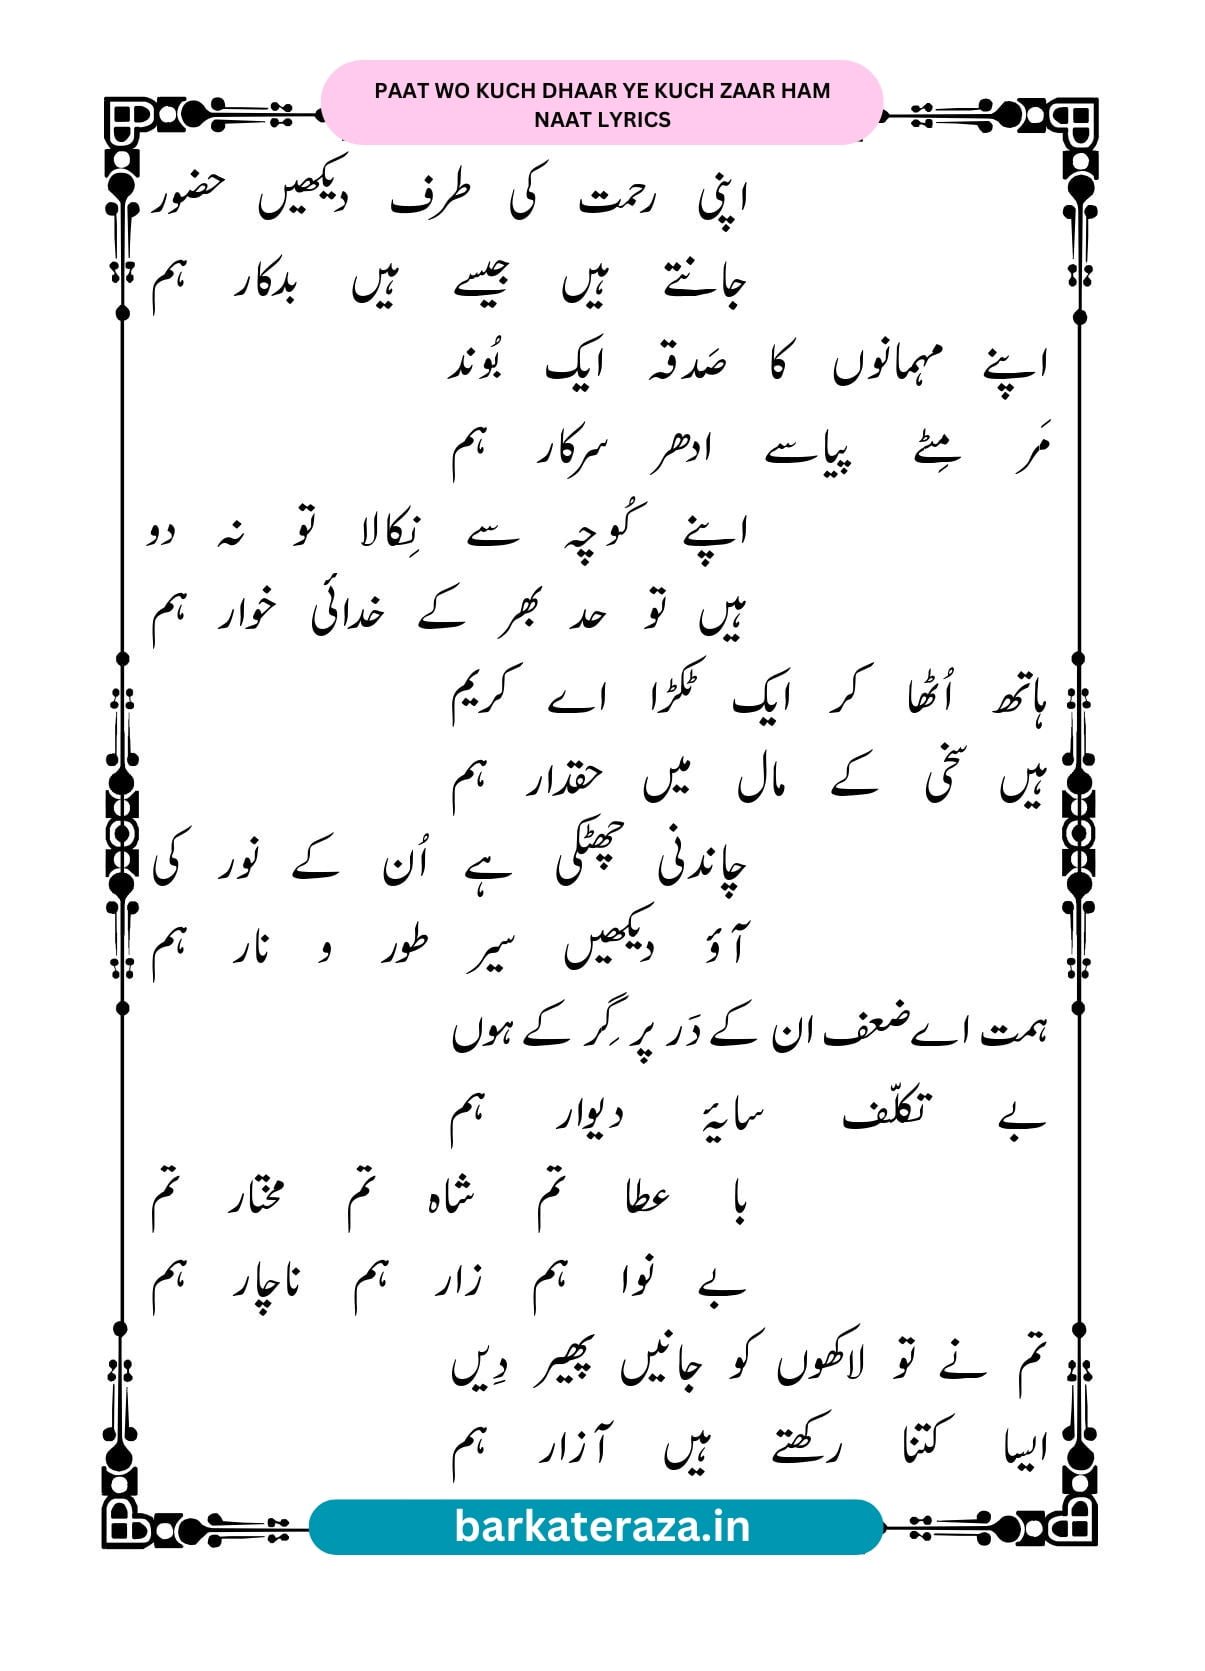 PAAT WO KUCH DHAAR YE KUCH ZAAR HAM
NAAT LYRICS
اپنی رحمت کی طرف دیکھیں حضور
جانتے ہیں جیسے ہیں بدکار ہم
اپنے مہمانوں کا صَدقہ ایک بُوند
مَر مِٹے پیاسے ادھر سرکار ہم
اپنے کُوچہ سے نِکالا تو نہ دو
ہیں تو حد بھر کے خدائی خوار ہم
ہاتھ اُٹھا کر ایک ٹکڑا اے کریم
ہیں سخی کے مال میں حقدار ہم
چاندنی چھٹکی ہے اُن کے نور کی
آؤ دیکھیں سیر طور و نار ہم
ہمت اے ضعف ان کے دَر پر گِر کے ہوں
بے تکلّف سایۂ دیوار ہم
با عطا تم شاہ تم مختار تم
بے نوا ہم زار ہم ناچار ہم
تم نے تو لاکھوں کو جانیں پھیر دِیں
ایسا کتنا رکھتے ہیں آزار ہم
barkateraza.in